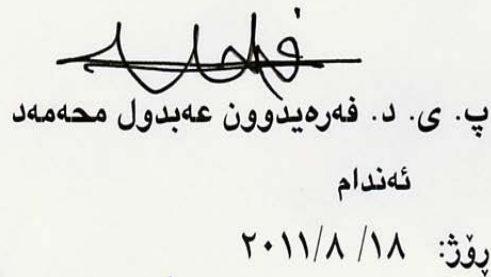 پ. ی. د. فەرەیدوون عەبدول محەمەد
ئەندام
ڕۆژ: ١٨/ ٨/ ٢٠١١